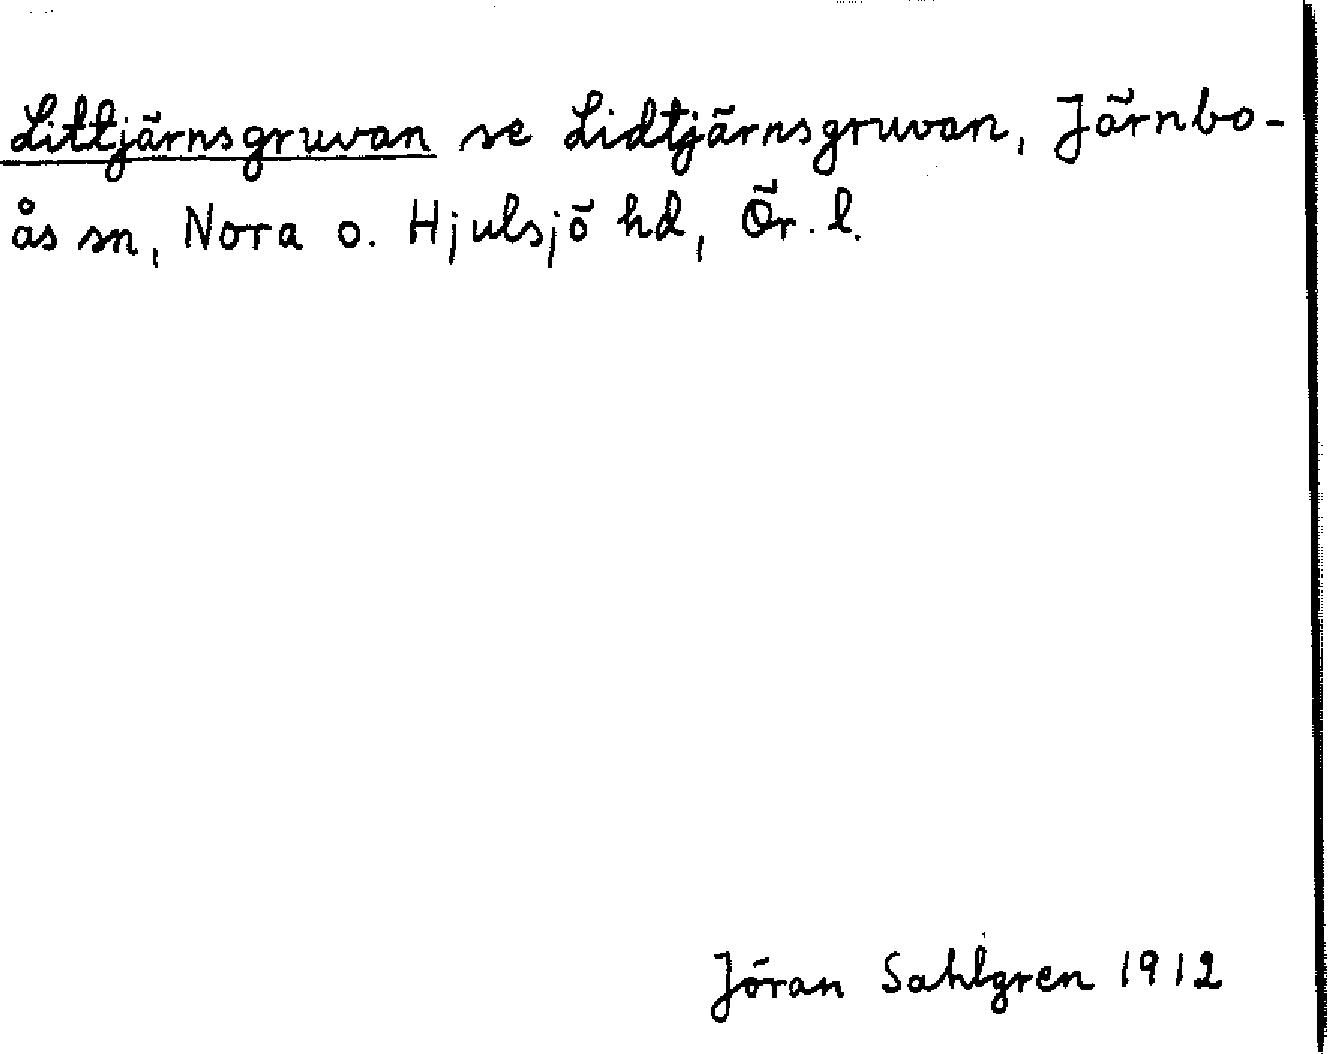 Littjärnsgruvan se Lidtjärnsgruvan, Järnbo-
ås sn, Nora o. Hjulsjö hd, Ör. l.
Jöran Sahlgren 1912